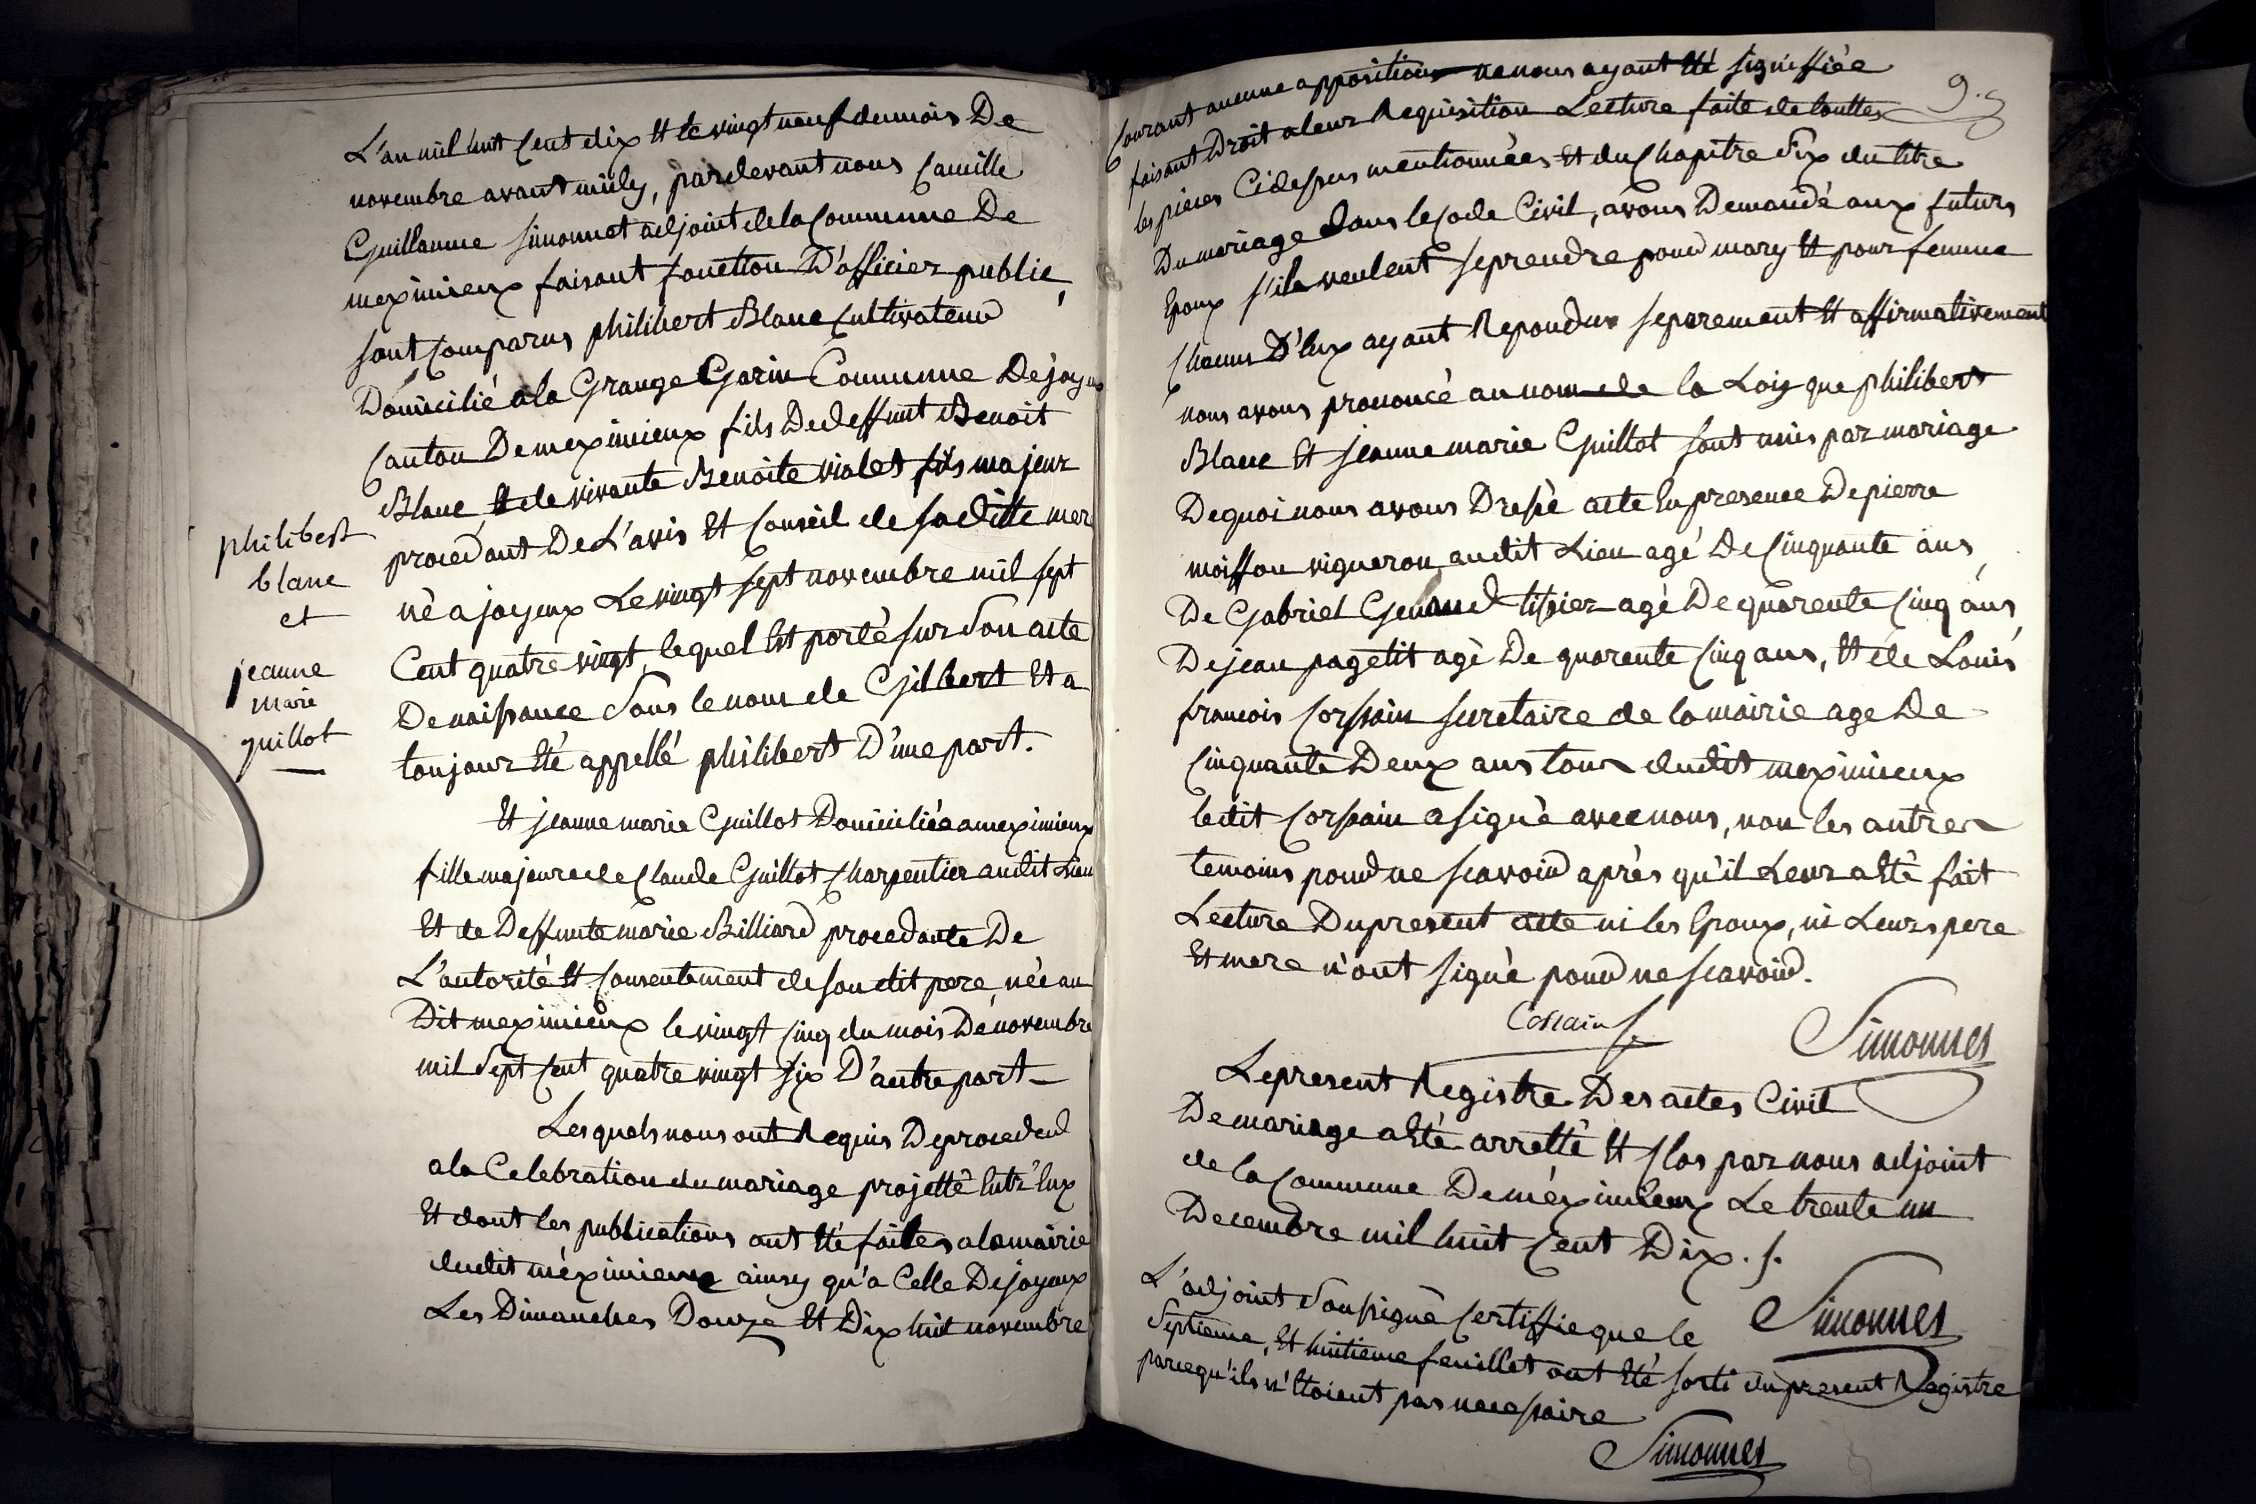 L'an mil huit Cent dix Et le vingt neuf du mois De
novembre avant midy, pardevant nous Camille
Guillaume Simonnet adjoint de la Commune De
meximieux faisant fonction D'officier public,
sont Comparus philibert Blanc Cultivateur
Domicilié a la Grange Garin Commune De joyeux
Canton De meximieux fils De deffunt Benoit
Blanc Et de vivante Benoite violet fils majeur
procedant De L'avis Et Conseil de sa ditte mere
né a joyeux Le vingt sept novembre mil sept
Cent quatre vingt, lequel Est porté sur Son acte
De naissance Sous le nom de Gilbert Et a
toujour Eté appellé philibert D'une part.
philibert
blanc
et
jeanne
marie
guillot
Et jeanne marie Guillot Domiciliée a meximieux
fille majeure de Claude Guillot Charpentier audit Lieu
Et de Deffunte marie Billiard procedante De
L'autorité Et Consentement de son dit pere, née au
Dit meximieux le vingt Cinq du mois De novembre
mil Sept Cent quatre vingt six D'autre part
Lesquels nous ont Requis De proceder
a la Celebration du mariage projetté Entr'Eux
Et dont les publications ont Eté faites a la mairie
dudit méximieux ainsy qu'a Celle De joyeux
Les Dimanches Douze Et Dix huit novembre
9.
Courant aucune apposition ne nous ayant Eté signiffiée
faisant Droit a leur Requisition Lecture faite de touttes
les pieces Cidessus mentionnées Et du Chapitre Six du titre
Du mariage dans le Code Civil, avons Demandé aux futurs
Epoux s'ils veulent se prendre pour mary Et pour femme
Chacun D'Eux ayant Repondus separement Et affirmativement
nous avons prononcé au nom de la Loix que philibert
Blanc Et jeanne marie Guillot sont unis par mariage
De quoi nous avons Dressé acte En presence De pierre
moiffon vigneron audit Lieu agé De Cinquante ans,
De Gabriel tissier agé De quarente Cinq ans,
De jean pagetit agé De quarente Cinq ans, Et de Louis
francois Corssain secretaire de la mairie age De
Cinquante Deux ans tous dudit meximieux
ledit Corssain a signé avec nous, non les autres
temoins pour ne scavoir après qu'il Leur a Eté fait
Lecture Du present acte ni les Epoux, ni Leurs pere
Et mere n'ont signé pour ne scavoir.
Corsain Simonnet
Le present Registre Des actes Civil
De mariage a Eté arretté Et Clos par nous adjoint
de la Commune De méximieux Le trente un
Decembre mil huit Cent Dix.
Simonnet
L'adjoint Soussigné Certiffie que le
Septieme, Et huitieme feuillet ont Eté sorti du present Registre
parcequ'ils n'Etoient pas necessaire
Simonnet